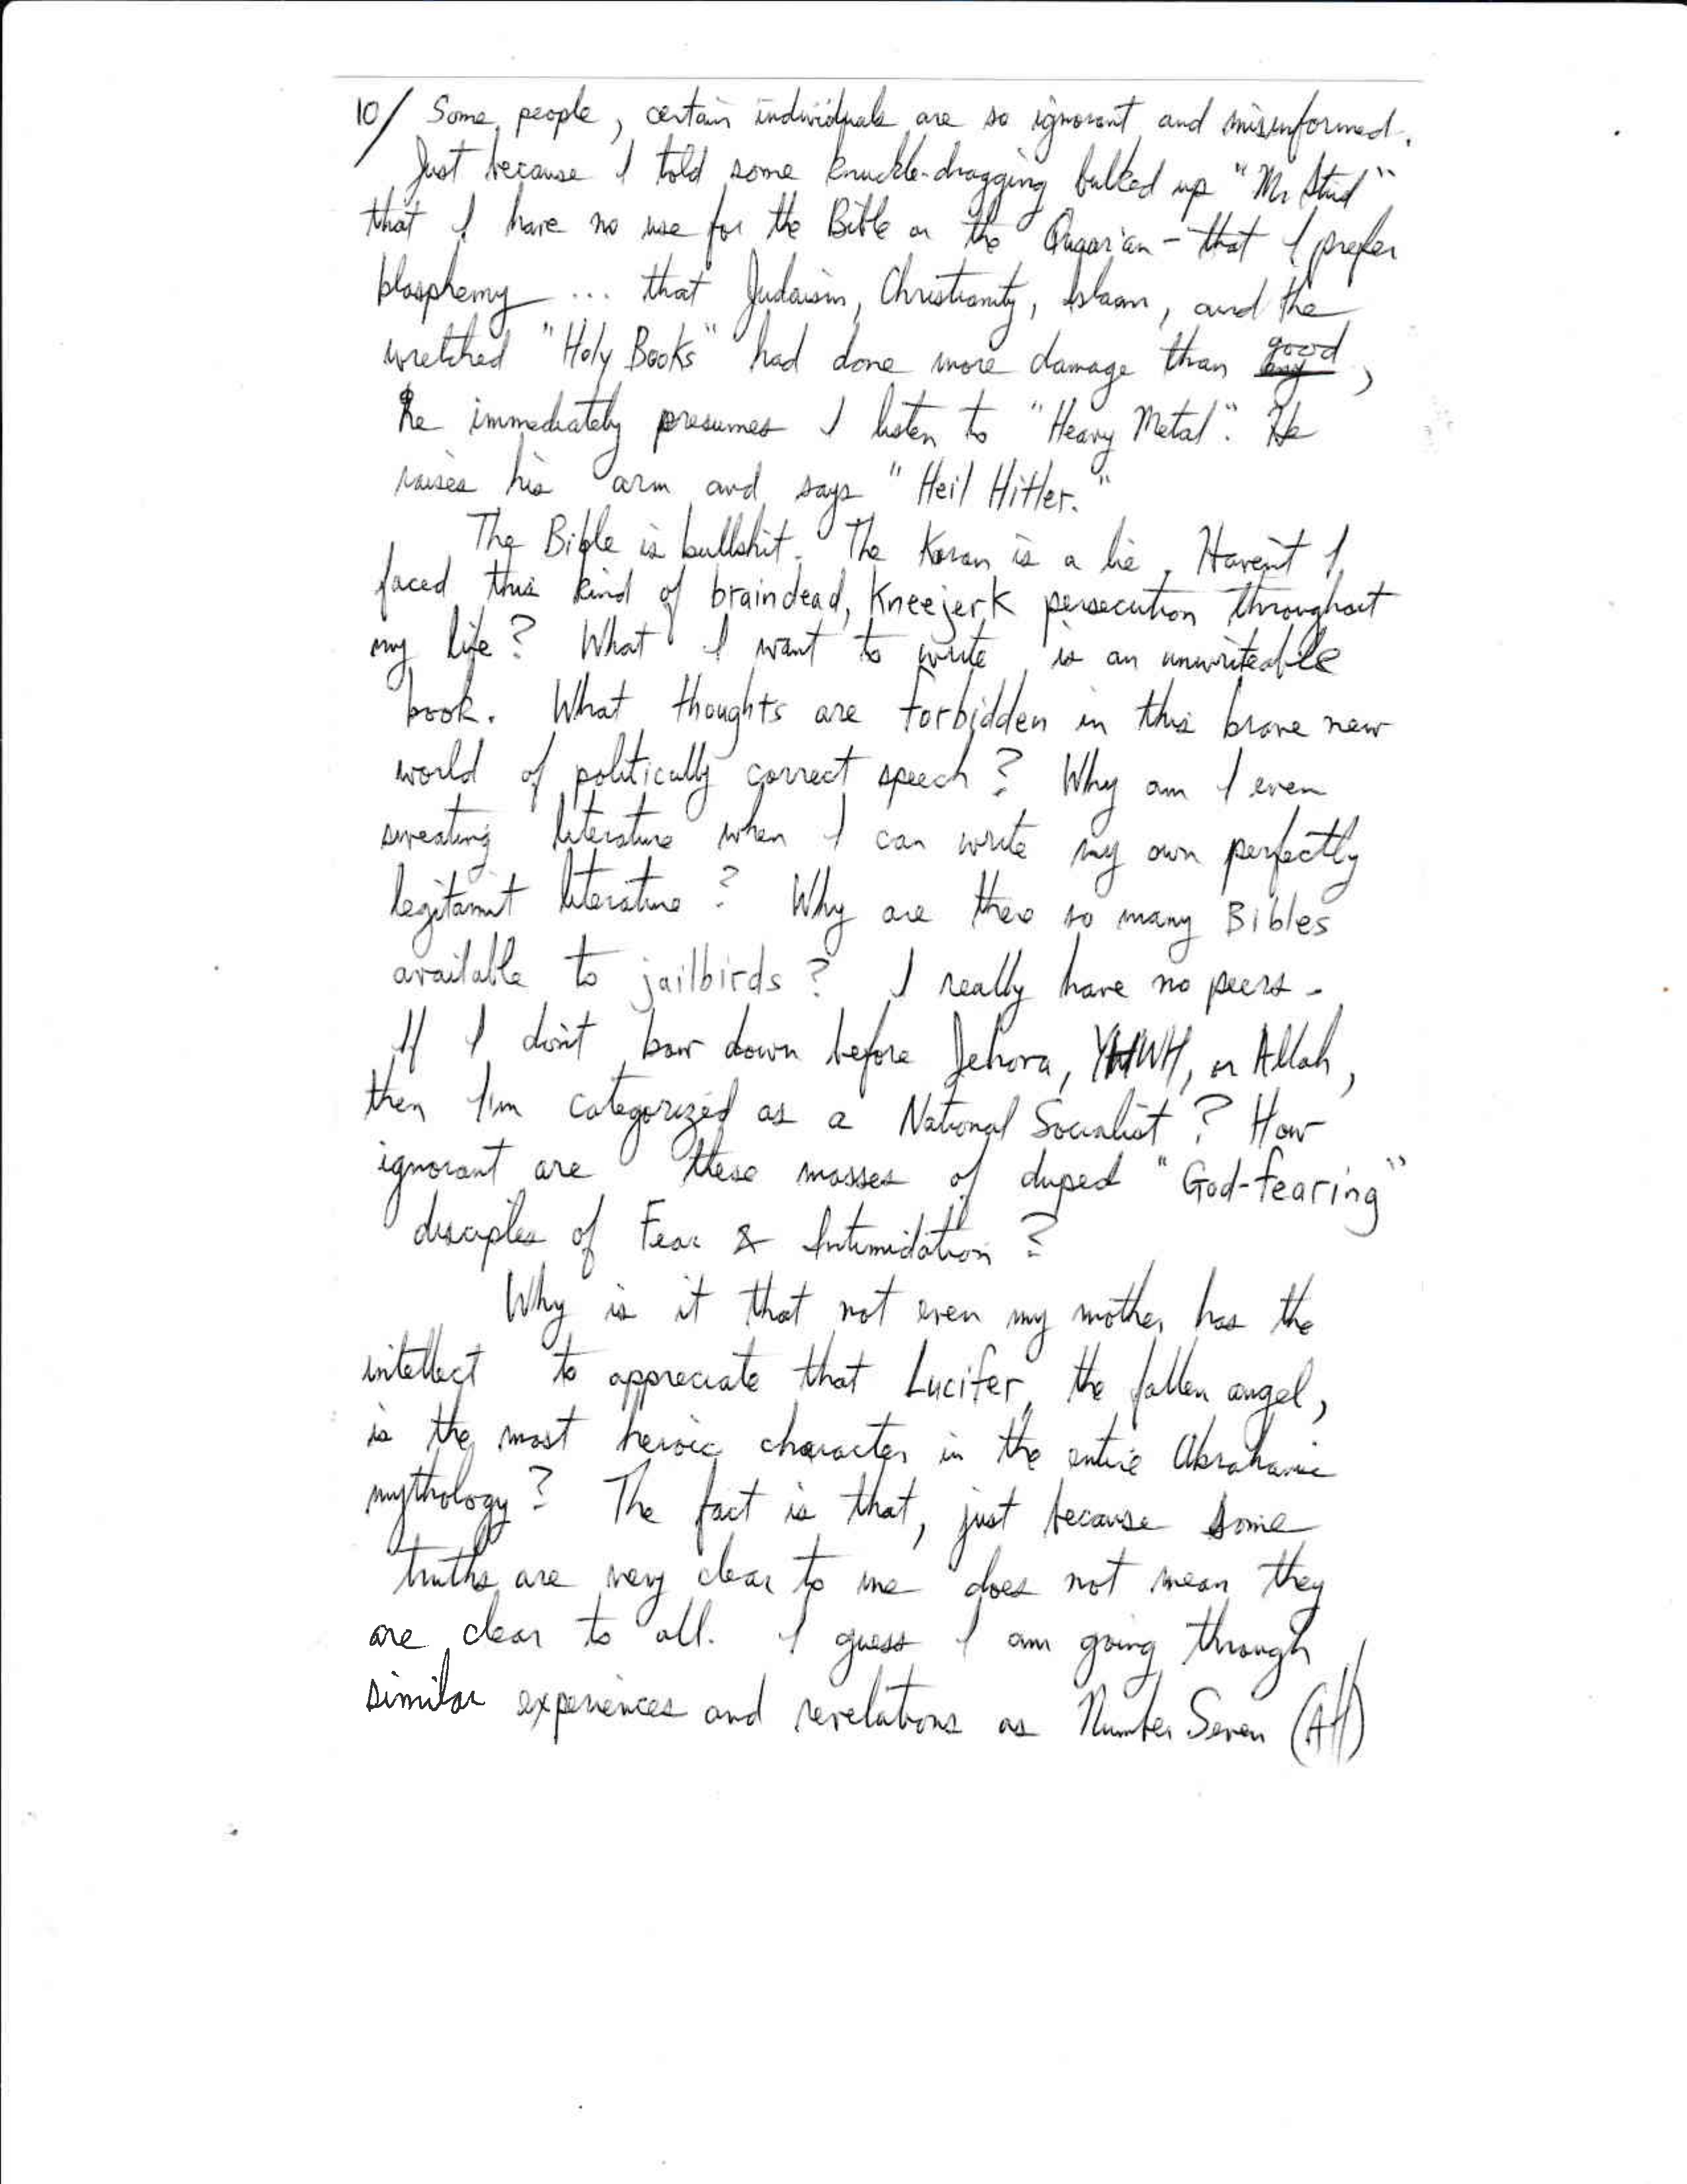 10/ Some people, certain individuals are so ignorant and misinformed.
Just because I told some knuckle-dragging bulked up "Mr Stud"
that I have no use for the Bible or the Quqar'an - that I prefer
blasphemy ... that Judaism, Christianity, Islaam, and the
wretched "Holy Books" had done more damage than good any,
he immediately presumes I listen to "Heavy Metal". He
raises his arm and says "Heil Hitler."
The Bible is bullshit. The Koran is a lie. Haven't I
faced this kind of braindead, Kneejerk persecution throughout
my life? What I want to write is an unwriteable
book. What thoughts are forbidden in this brave new
world of politically correct speech? Why am I even
sweating literature when I can write my own perfectly
legitamit literature? Why are there so many Bibles
available to jailbirds? I really have no peers.
If I don't bow down before Jehova, YHWH, or Allah,
then I'm categorized as a National Socialist? How
ignorant are these masses of duped "God-fearing"
disciples of Fear & Intimidation?
Why is it that not even my mother has the
intellect to appreciate that Lucifer, the fallen angel,
is the most heroic character in the entire Abrahamic
mythology? The fact is that, just because some
truths are very clear to me does not mean they
are clear to all. I guess I am going through
similar experiences and revelations as Number Seven (AH)